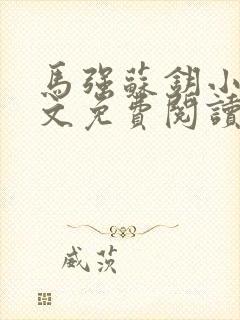 馬強蘇鈅小
文免費閱讀
威茨